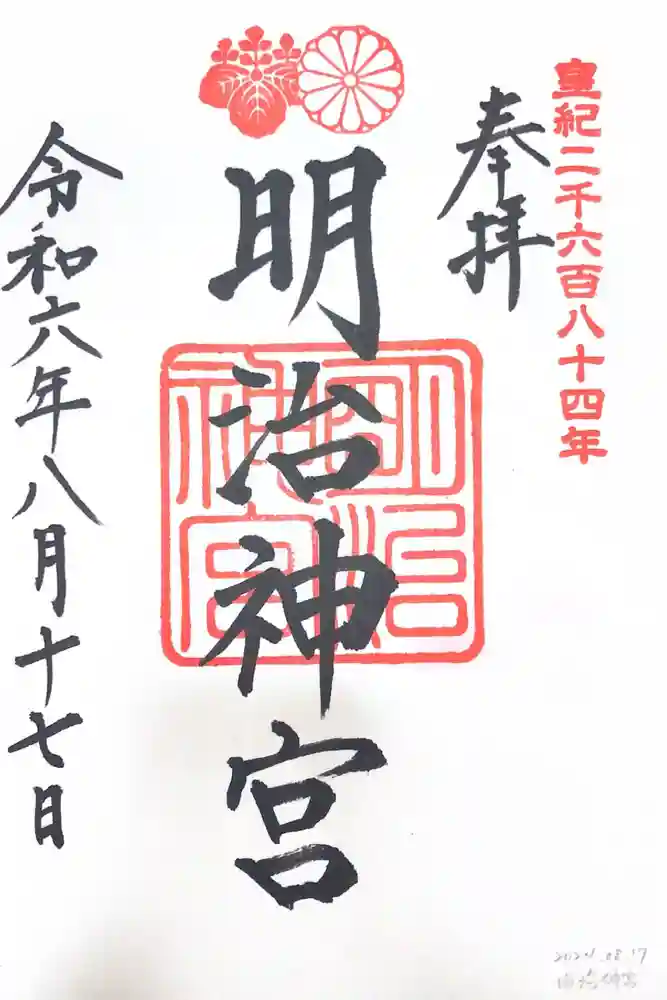 皇紀二千六百八十四年
奉拝
明治神宮
明治神宮
令和六年八月十七日
2024.08.17
明治神宮